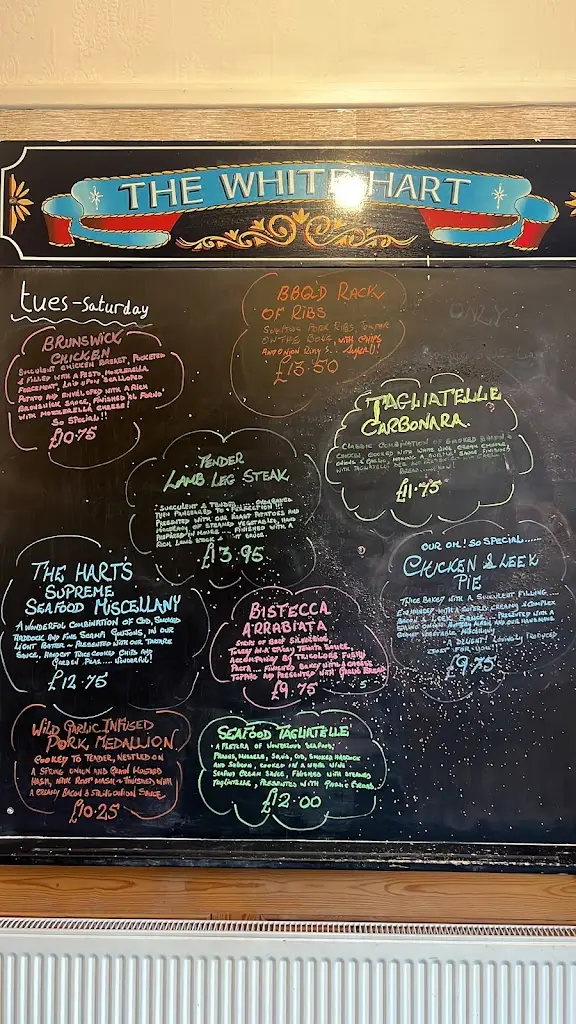 THE WHITE HART
tues-saturday
ONLY
BRUNSWICK
CHICKEN
SUCCULENT CHICKEN BREAST, POCKETED
& FILLED WITH A PESTO, MOZZERELLA
FORCEMENT, LAID UPON SCALLOPED
POTATO AND ENVELOPED WITH A RICH
BRUNSWICK SAUCE, FINISHED AL FORNO
WITH MOZZERELLA CHEESE!
SO SPECIAL!!
£10.75
BBQ'D RACK
OF RIBS
PORK RIBS, TENDER
ON THE BONE, WITH CHIPS
AND ONION RINGS... SUPER!!
£13.50
TAGLIATELLE
CARBONARA
CLASSIC COMBINATION OF SMOKED BACON &
CHICKEN, COOKED WITH WHITE WINE, CREAM, CHEESE,
ONIONS & GARLIC, MAKING A SUBLIME SAUCE FINISHED
WITH TAGLIATELLE
£11.75
TENDER
LAMB LEG STEAK
SUCCULENT & TENDER
THEN PANSEARED TO PERFECTION!!!
PRESENTED WITH OUR ROAST POTATOES AND
STEAMED VEGETABLES, HAND
PREPARED IN HOUSE... FINISHED WITH A
RICH LAMB STOCK SAUCE.
£13.95
OUR OH! SO SPECIAL......
CHICKEN & LEEK
PIE
TWICE BAKED WITH A SUCCULENT FILLING....
ENHANCED WITH A SUPERB CREAMY & COMPLEX
BACON & LEEK SAUCE, PRESENTED WITH A
CREAMY BUTTERY MASH AND OUR HANDMADE
VEGETABLE
A DELIGHT LOVINGLY PRODUCED
JUST FOR YOU!!
£9.75
THE HART'S
SUPREME
SEAFOOD MISCELLANY
A WONDERFUL COMBINATION OF COD, SMOKED
HADDOCK AND FINE SCAMPI GOUJONS, IN OUR
LIGHT BATTER - PRESENTED WITH OUR TARTARE
SAUCE, HANDCUT TWICE COOKED CHIPS AND
GARDEN PEAS.... WONDERFUL!
£12.75
BISTECCA
ARRABIATA
STRIPS OF BEEF SILVERSIDE,
IN A SPICY TOMATO SAUCE,
ACCOMPANIED BY TRICOLORE FUSILLI
PASTA... FINISHED BAKED WITH A CHEESE
TOPPING AND PRESENTED WITH GARLIC BREAD.
£9.75
WILD GARLIC INFUSED
PORK, MEDALLION
COOKED TO TENDER, NESTLED ON
A SPRING ONION AND GRAIN MUSTARD
MASH, WITH ROOT MASH & FINISHED WITH
A CREAMY BACON & STRING ONION SAUCE.
£10.25
SEAFOOD TAGLIATELLE
A PLETHORA OF WONDEROUS SEAFOOD,
PRAWNS, MUSSELS, SQUID, COD, SMOKED HADDOCK
AND SALMON, COOKED IN A WHITE WINE
SEAFOOD CREAM SAUCE, FINISHED WITH STEAMED
TAGLIATELLE, PRESENTED WITH GARLIC BREAD.
£12.00